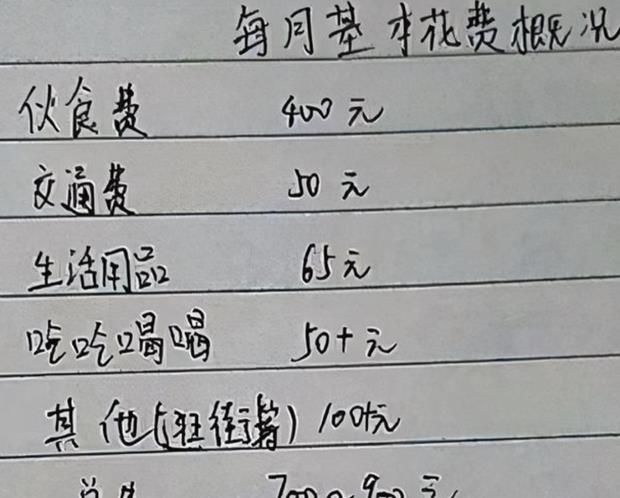 每月基本花费概况
伙食费 400元
交通费 50元
生活用品 65元
吃吃喝喝 50+元
其他(逛街等) 100+元
700~900元